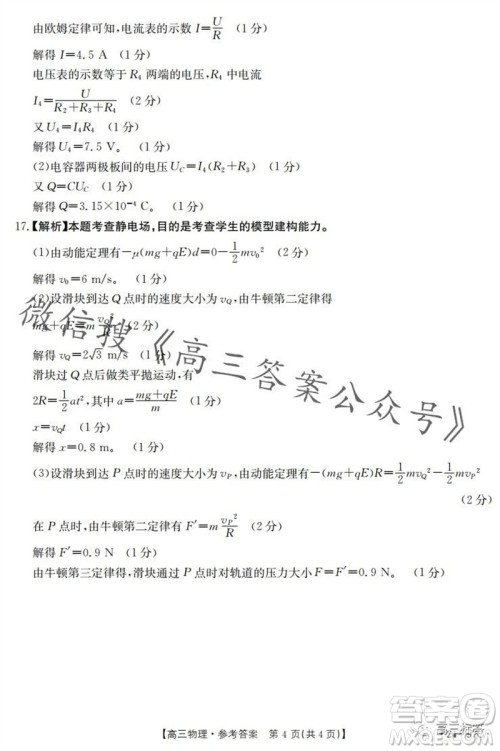 由欧姆定律可知,电流表的示数 I=U/R (1分)
解得 I=4.5 A (1分)
电压表的示数等于 R₄ 两端的电压,R₄ 中电流
I₄=U/(R₂+R₃+R₄) (2分)
又 U₄=I₄R₄ (1分)
解得 U₄=7.5 V。 (1分)
(2)电容器两极板间的电压 U_C=I₄(R₃+R₄) (2分)
又 Q=CU_C (1分)
解得 Q=3.15×10⁻⁴ C。 (1分)
17.【解析】本题考查静电场,目的是考查学生的模型建构能力。
(1)由动能定理有−μ(mg+qE)d=0−1/2mv₀² (2分)
解得 v₀=6 m/s。 (1分)
(2)设滑块到达 Q 点时的速度大小为 v_Q,由牛顿第二定律得
mg+qE=m v_Q²/R (1分)
解得 v_Q=2√3 m/s (1分)
滑块过 Q 点后做类平抛运动,有
2R=1/2at²,其中 a=(mg+qE)/m (1分)
x=v_Qt (1分)
解得 x=0.8 m。 (1分)
(3)设滑块到达 P 点时的速度大小为 v_P,由动能定理有−(mg+qE)R=1/2mv_Q²−1/2mv_P²
(2分)
在 P 点时,由牛顿第二定律有 F′=m v_P²/R (2分)
解得 F′=0.9 N (1分)
由牛顿第三定律得,滑块通过 P 点时对轨道的压力大小 F=F′=0.9 N。 (1分)
微信搜《高三答案公众号》
【高三物理·参考答案 第 4 页(共 4 页)】
答案圈
MXQE.COM